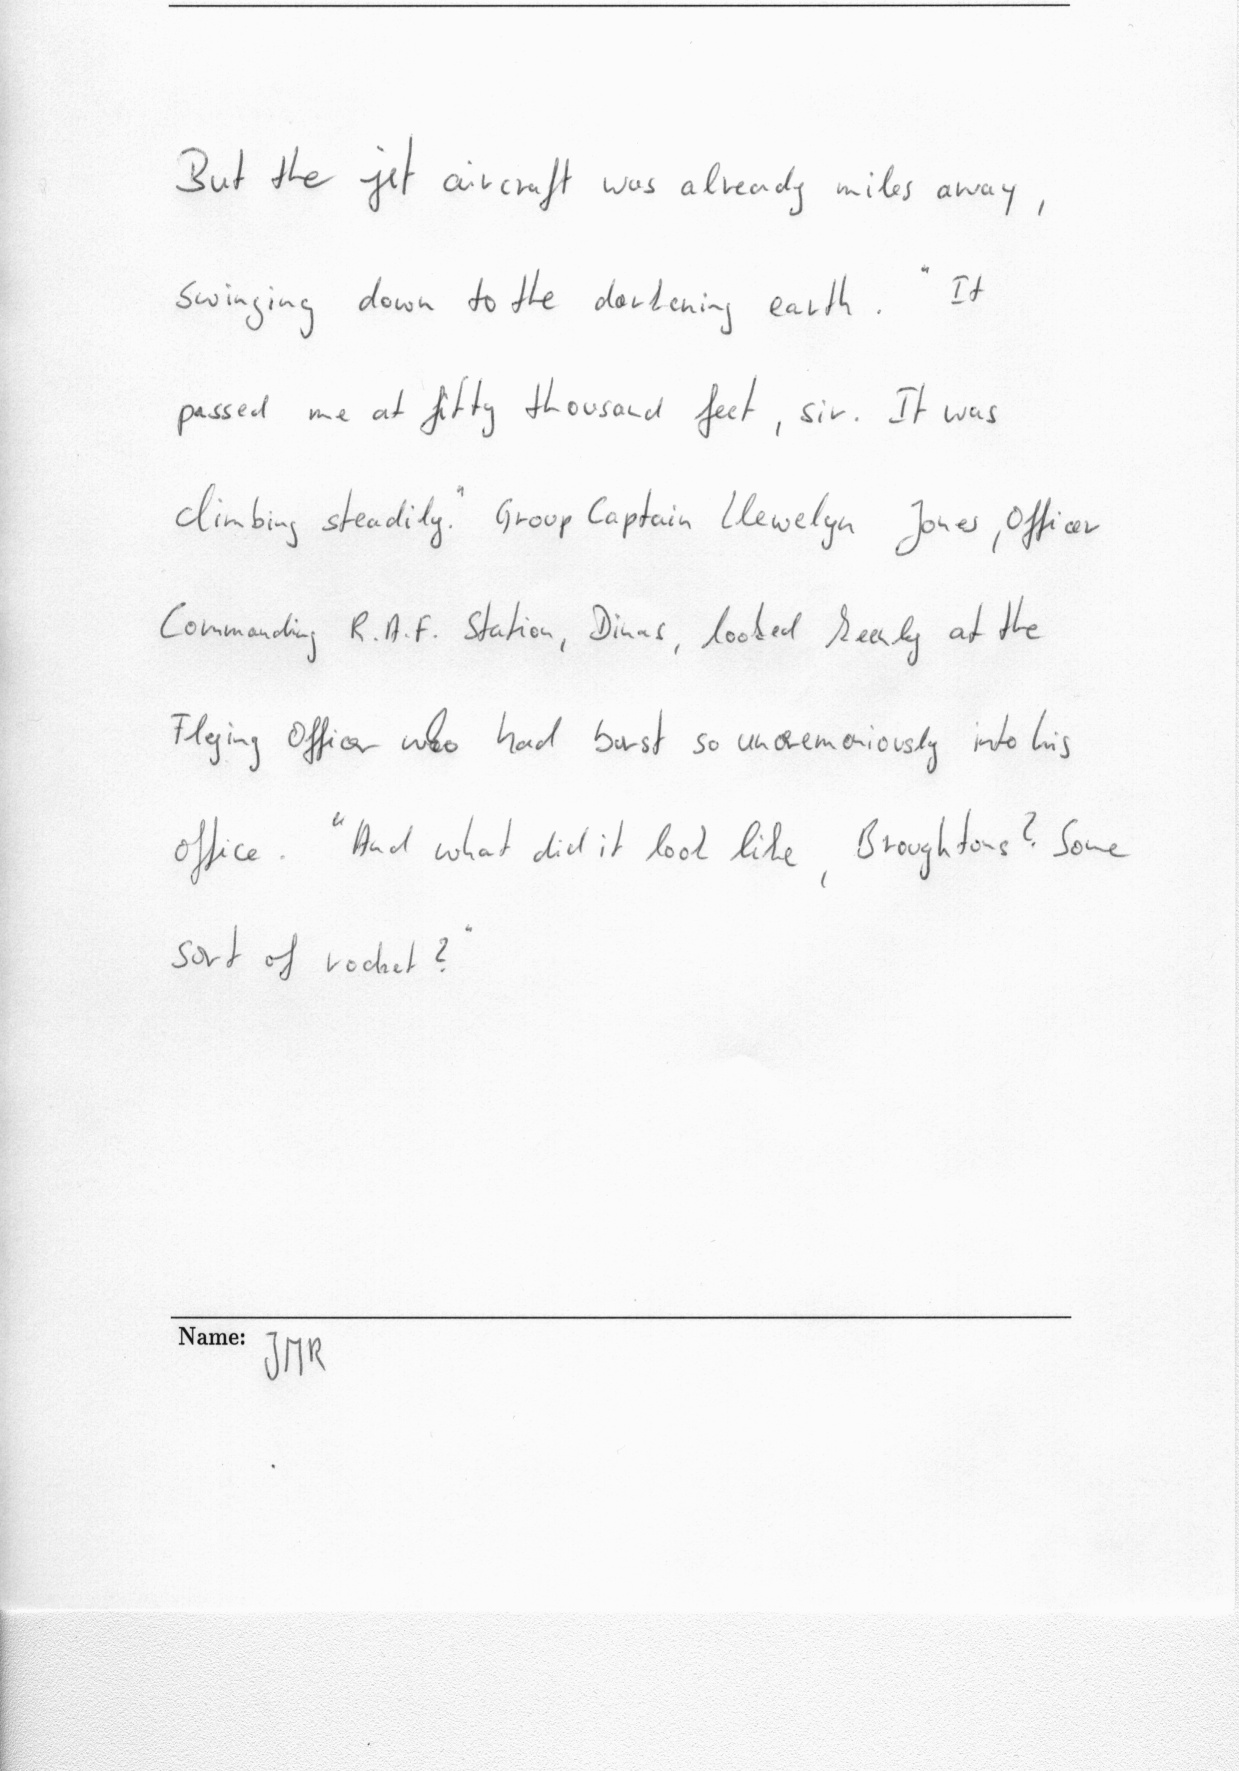 But the jet aircraft was already miles away,
swinging down to the darkening earth. "It
passed me at fifty thousand feet, sir. It was
climbing steadily." Group Captain Llewelyn Jones, Officer
Commanding R.A.F. Station, Dinas, looked keenly at the
Flying Officer who had burst so unceremoniously into his
office. "And what did it look like, Broughtons? Some
sort of rocket?"
Name: JMR